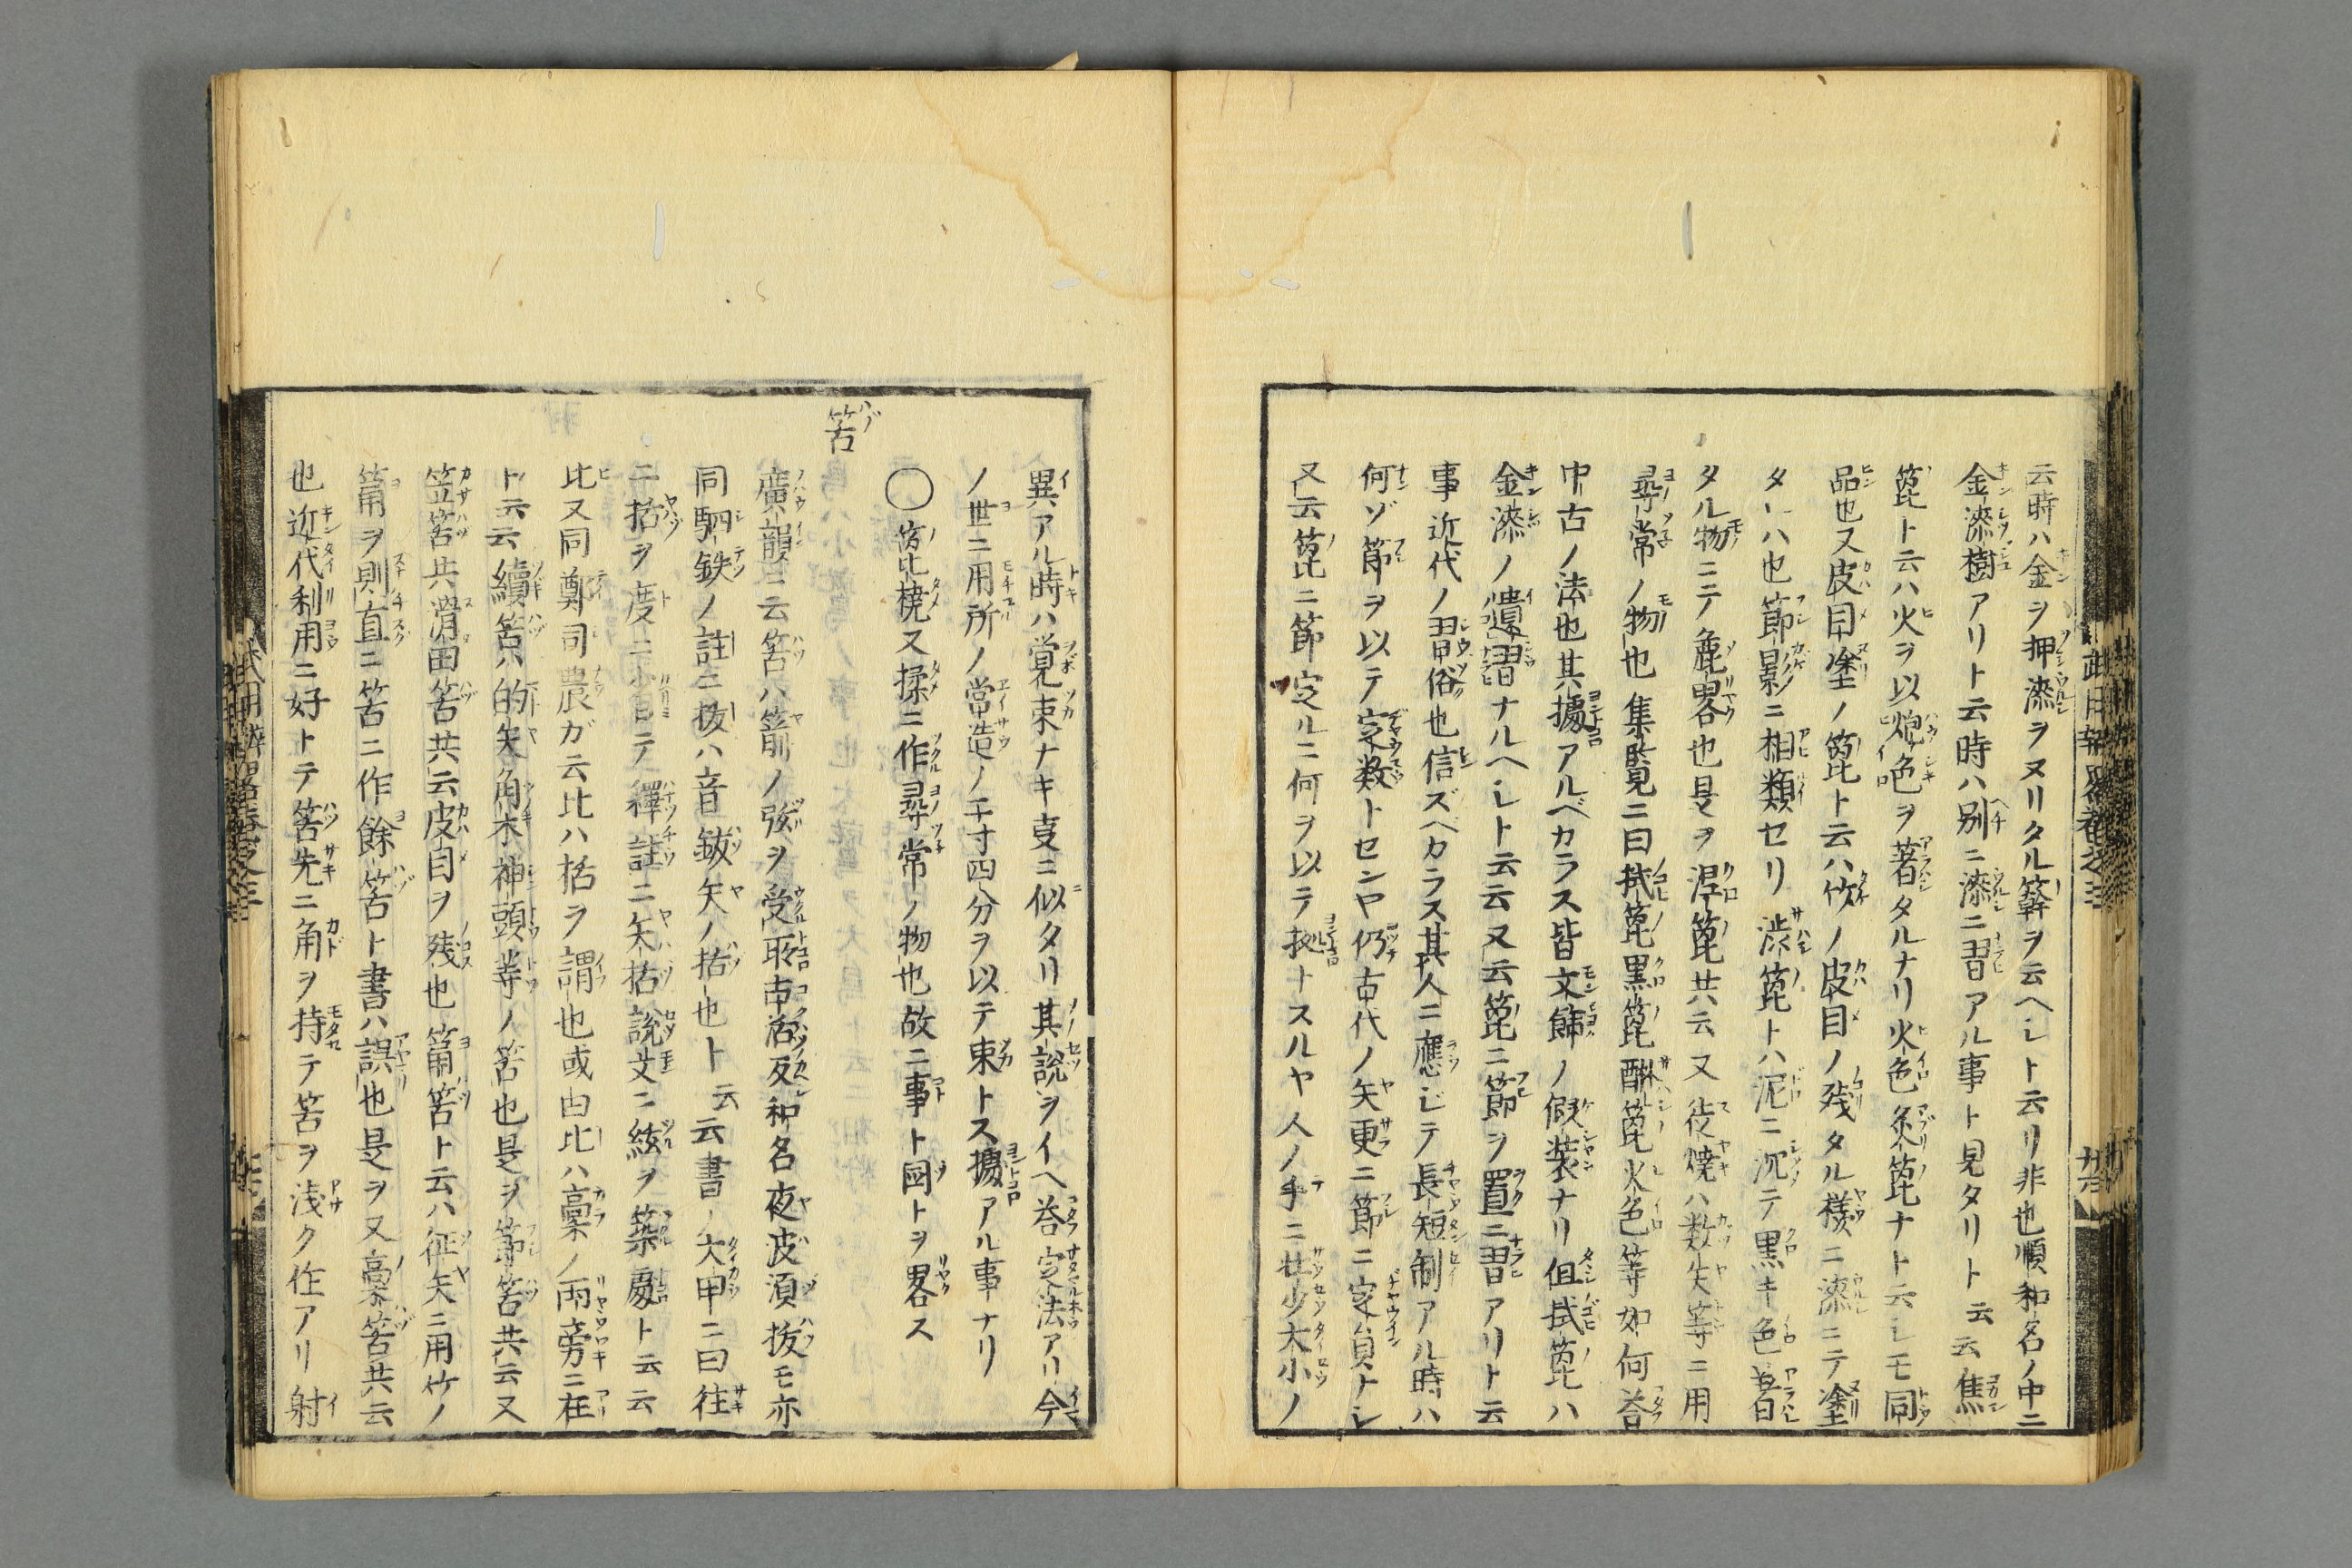 云時ハ金ヲ押漆ヲヌリタル簳ヲ云ヘシト云リ非也順和名ノ中ニ
金漆樹アリト云時ハ別ニ漆ニ習アル事ト見タリト云云焦
箆ト云ハ火ヲ以炮色ヲ著タルナリ火色炙箆ナト云シモ同
品也又皮目塗ノ箆ト云ハ竹ノ皮目ノ残タル様ニ漆ニテ塗
タルハ也節影ニ相類セリ渋箆トハ泥ニ沉テ黒キ色著
タル物ニテ麁畧也是ヲ涅箆共云又焼ハ数矢等ニ用
尋常ノ物也集覧ニ曰拭箆黒箆醂箆火色等如何荅
中古ノ法也其據アルベカラス皆文餙ノ假装ナリ但拭箆ハ
金漆ノ遺習ナルヘシト云云又云箆ニ節ヲ置ニ習アリト云
事近代ノ習俗也信ズベカラス其人ニ應シテ長短制アル時ハ
何ゾ節ヲ以テ定数トセンヤ仍古代ノ矢更ニ節ニ定負ナシ
又云箆ニ節定ルニ何ヲ以テ拠トスルヤ人ノ手ニ壮少大小ノ
異アル時ハ覚束ナキ叓ニ似タリ其説ヲイヘ荅定法アリ今
ノ世ニ用所ノ営造ノ千寸四分ヲ以テ束トス據アル事ナリ
○箆橈又揉ニ作尋常ノ物也故ニ事ト図トヲ畧ス
筈
廣韻ニ云筈ハ箭ノ弦ヲ受所古活反和名夜波須拔モ亦
同駟鉄ノ註ニ拔ハ音鈸矢ノ括也ト云云書ノ大甲ニ曰往
ニ括ヲ度ニ省テ釋註ニ矢括説文ニ絃ヲ築處ト云云
比又同鄭司農ガ云比ハ括ヲ謂也或曰比ハ稾ノ両旁ニ在
ト云云續筈ハ的矢角木神頭等ノ筈也是ヲ節筈共云又
笠筈共滑田筈共云皮目ヲ残也筩筈ト云ハ征矢ニ用竹ノ
筩ヲ則直ニ筈ニ作餘筈ト書ハ誤也是ヲ又稾筈共云
也近代利用ニ好トテ筈先ニ角ヲ持テ筈ヲ浅ク作アリ射